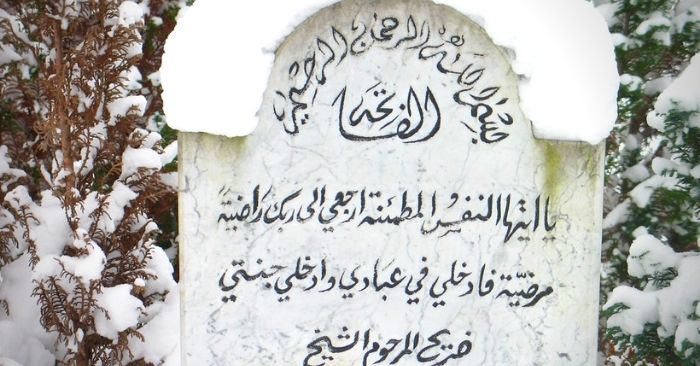 بسم الله الرحمن الرحيم
الفاتحة
يا ايتها النفس المطمئنة ارجعي الى ربك راضية
مرضيّة فادخلي في عبادي وادخلي جنتي
ضريح المرحوم الشيخ